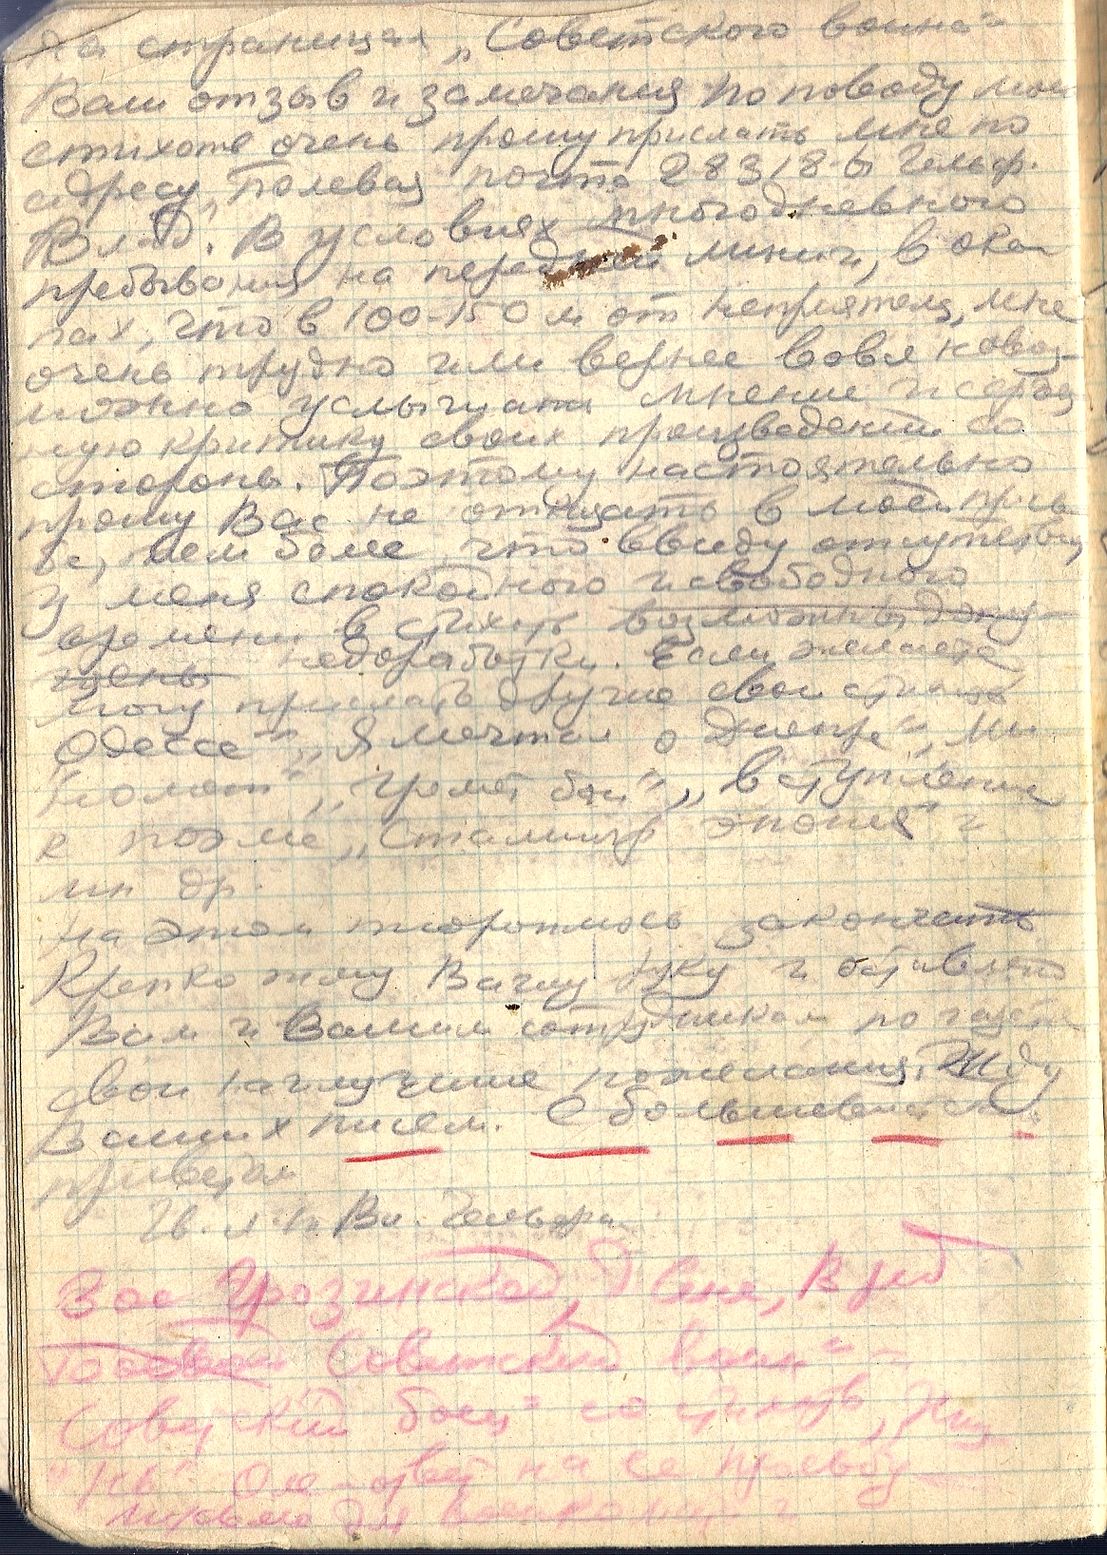 На страницах „Советского воина“
Ваш отзыв и замечания по поводу моих
стихов очень прошу прислать мне по
адресу, полевая почта 28318-б Гельф.
Влад. В условиях многодневного
пребывания на передней линии, в око
пах, что в 100-150 м от неприятеля, мне
очень трудно или вернее вовсе невоз-
можно услышать мнение и серьез
ную критику своих произведений со
стороны. Поэтому настоятельно
прошу Вас не отказать в моей прось
бе, тем более, что ввиду отсутствия
у меня спокойного и свободного
времени в стихах возможны допу
щены недоработки. Если желаете
могу прислать другие свои стихи
Одессе“, „Я мечтал о Днепре“, Ми
номет“, „Гремят бои“, „Вступление
к поэме „Сталингр эпопея“ и
мн др.
На этом тороплюсь закончить
Крепко жму Вашу руку и
Вам и Вашим сотрудникам по газете
свои наилучшие пожелания. Жду
Ваших писем. С большевистским
приветом
Гв. л-т Вл. Гельфан
3 ое Грозинской, Ане, В ред
Советский воин“ –
Советский боец“ со стихотв
Оле – ответ на ее просьбу
письмо для